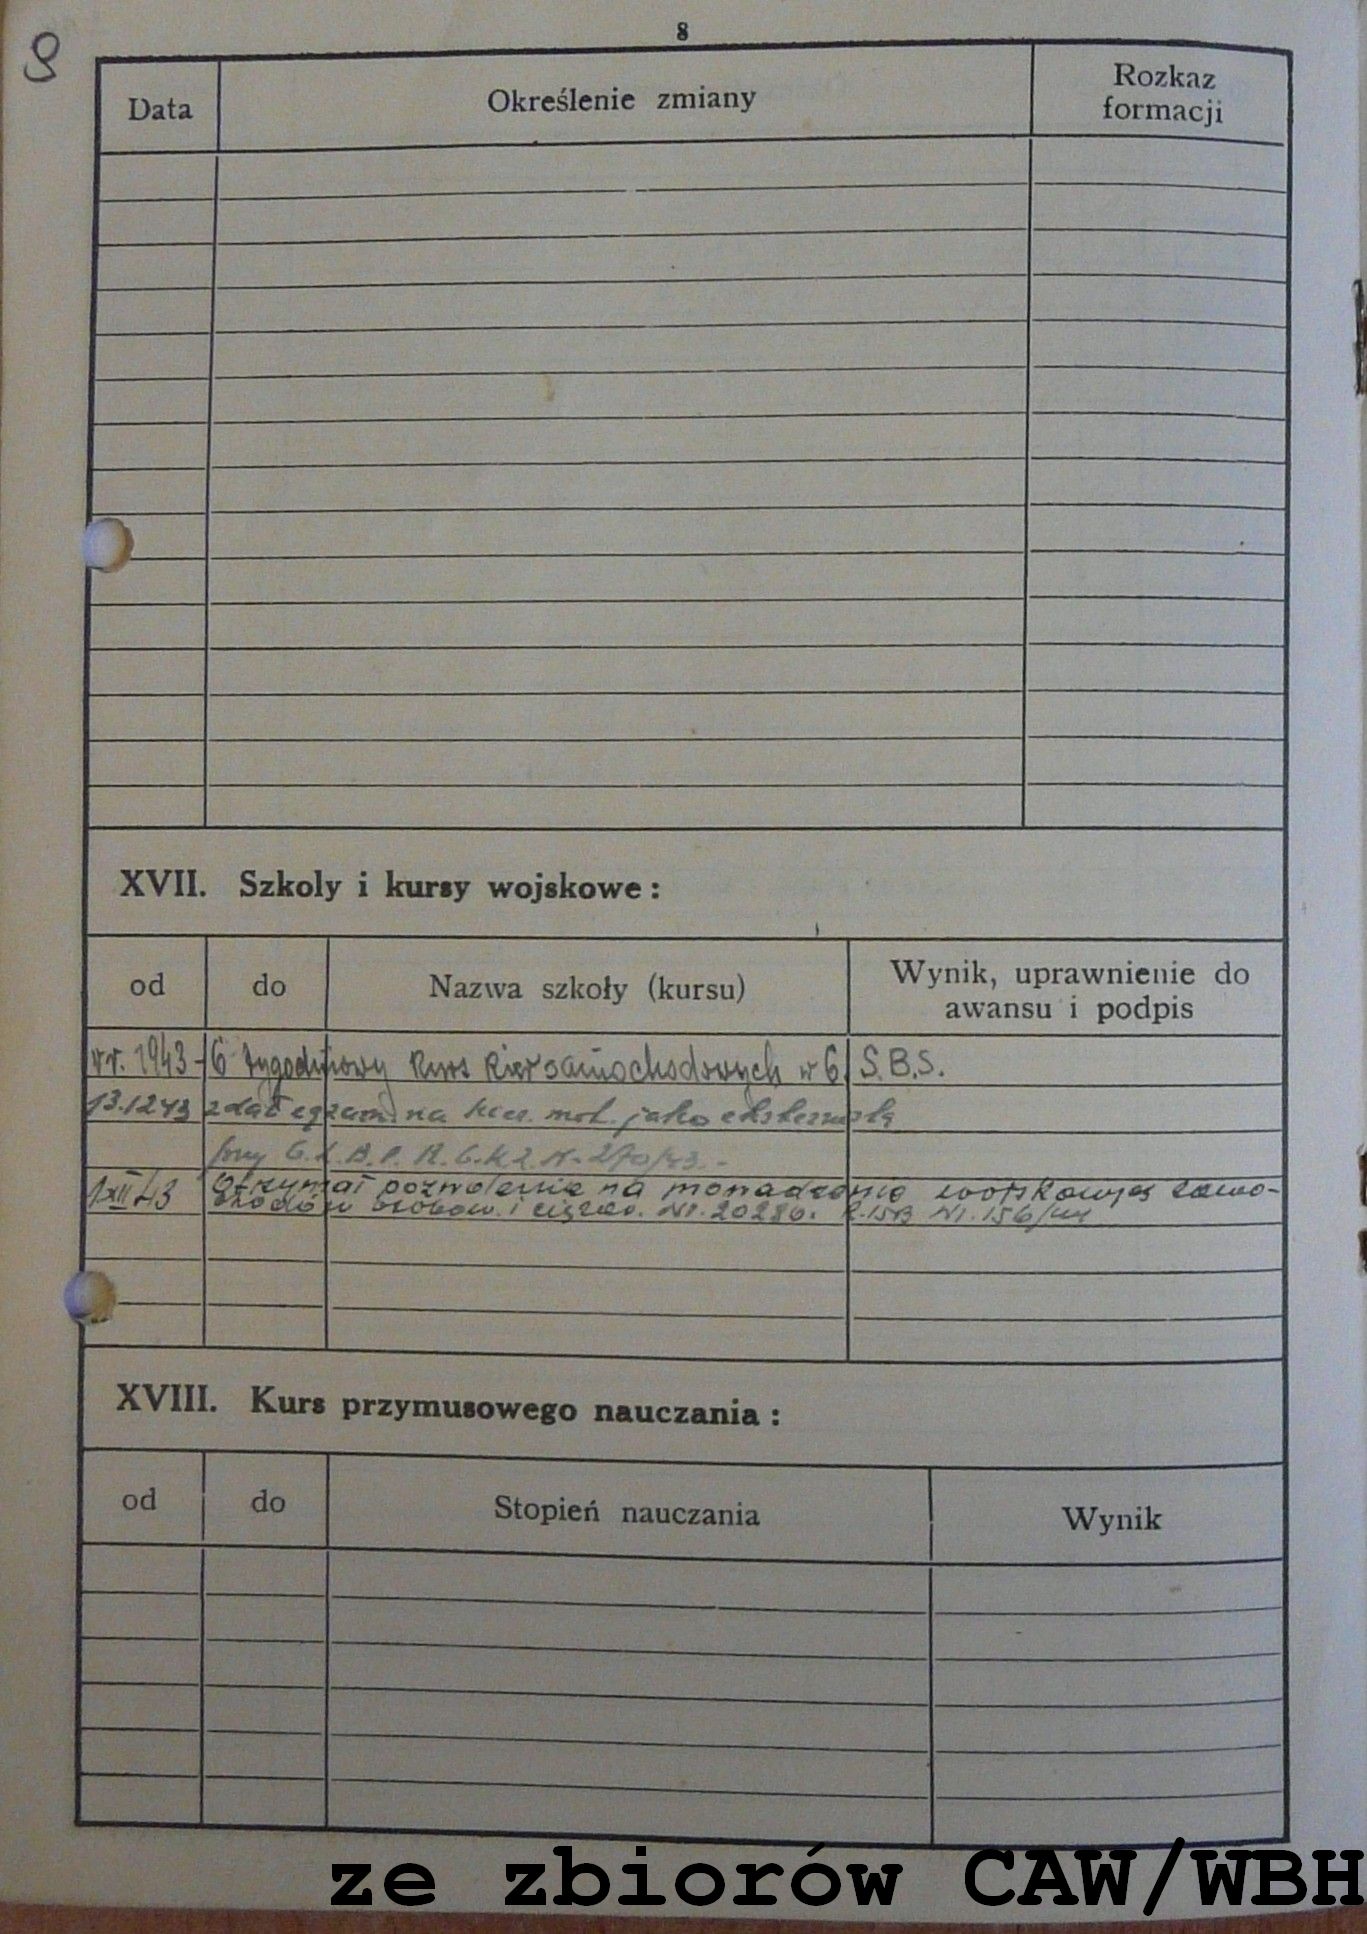 8
8
Data Określenie zmiany Rozkaz formacji
XVII. Szkoly i kursy wojskowe :
od do Nazwa szkoły (kursu) Wynik, uprawnienie do awansu i podpis
w r. 1943 - 6 tygodniowy kurs kier samochodowych w 6 S.B.S.
13.12 43 zdał egzam. na kier. mot. jako eksternista
przy 6. 270/43. -
1 XII 43 Otrzymał pozwolenie na prowadzenie wojskowych samo-
chodów osobow. i ciężar. Nr. 20286. Nr. 156/44
XVIII. Kurs przymusowego nauczania :
od do Stopień nauczania Wynik
ze zbiorów CAW/WBH